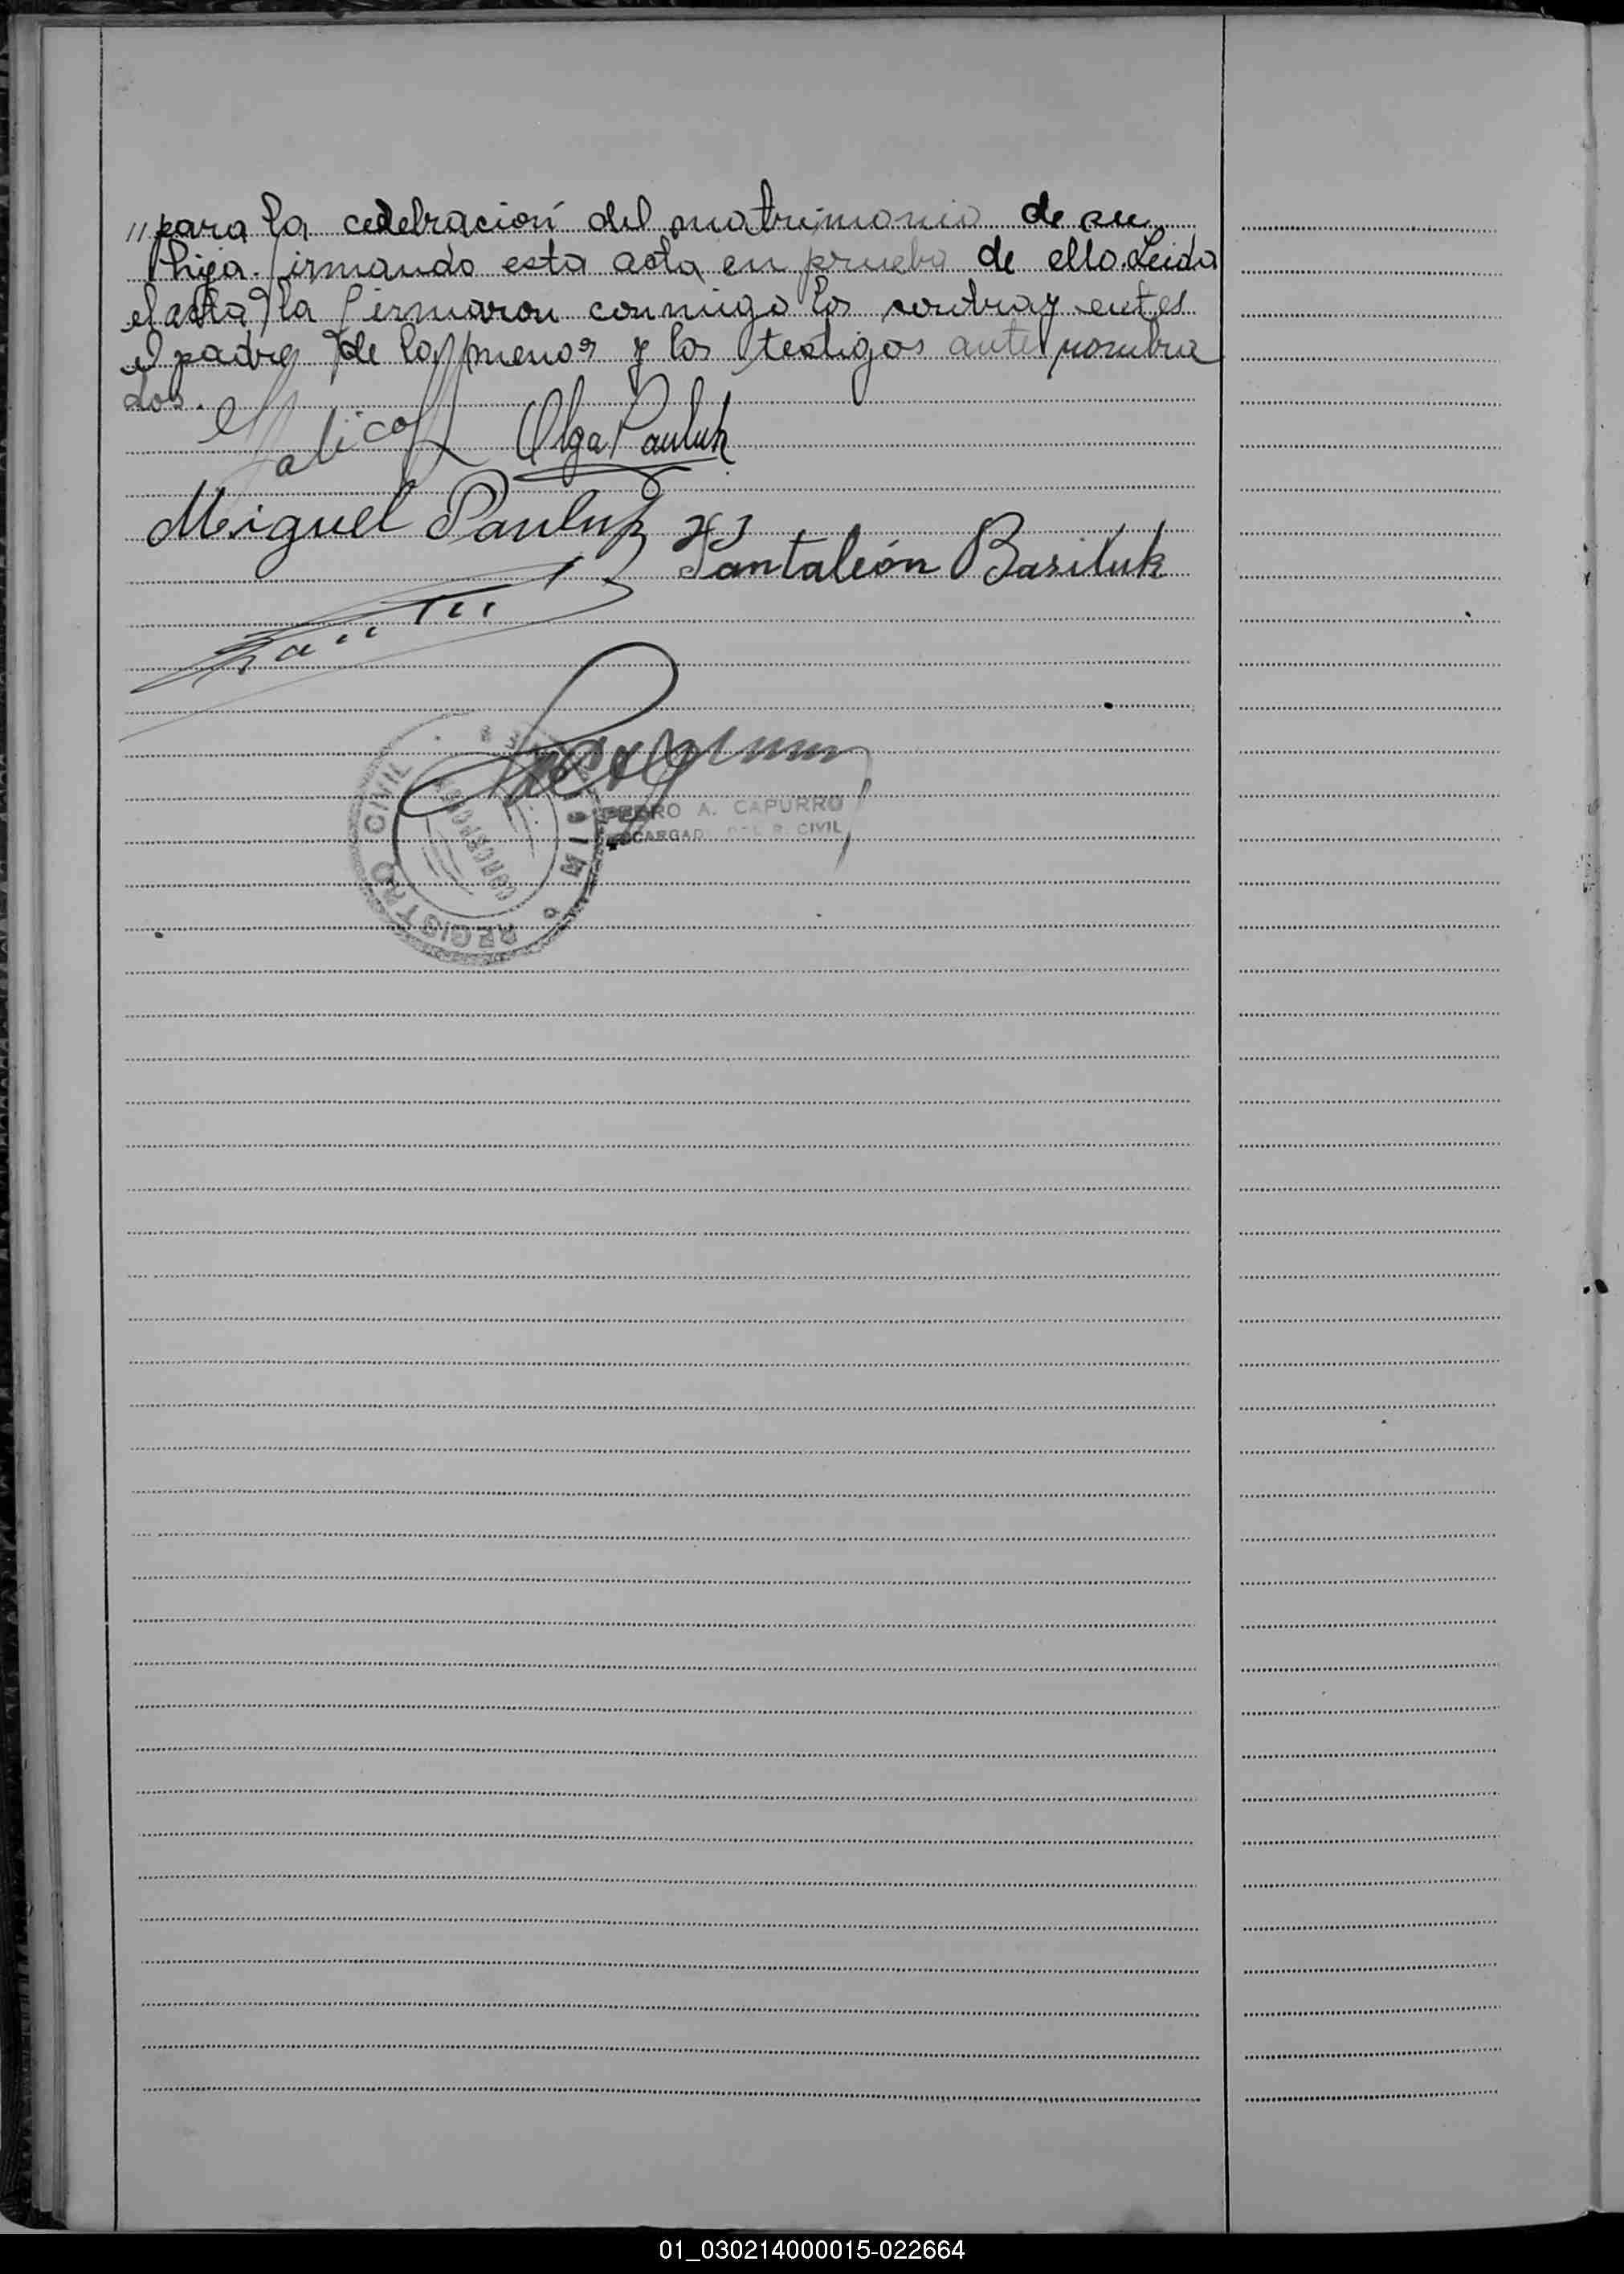 "para la celebración del matrimonio de su
hija. firmando esta acta en prueba de ello. Leida
el acta, la firmaron conmigo los contrayentes
el padre de la menor y los testigos antenombra
dos.
Olga Pauluk
Miguel Pauluk
Pantaleón Basiluk
REGISTRO CIVIL
PEDRO A. CAPURRO
ENCARGADO DEL R. CIVIL
01_030214000015-022664